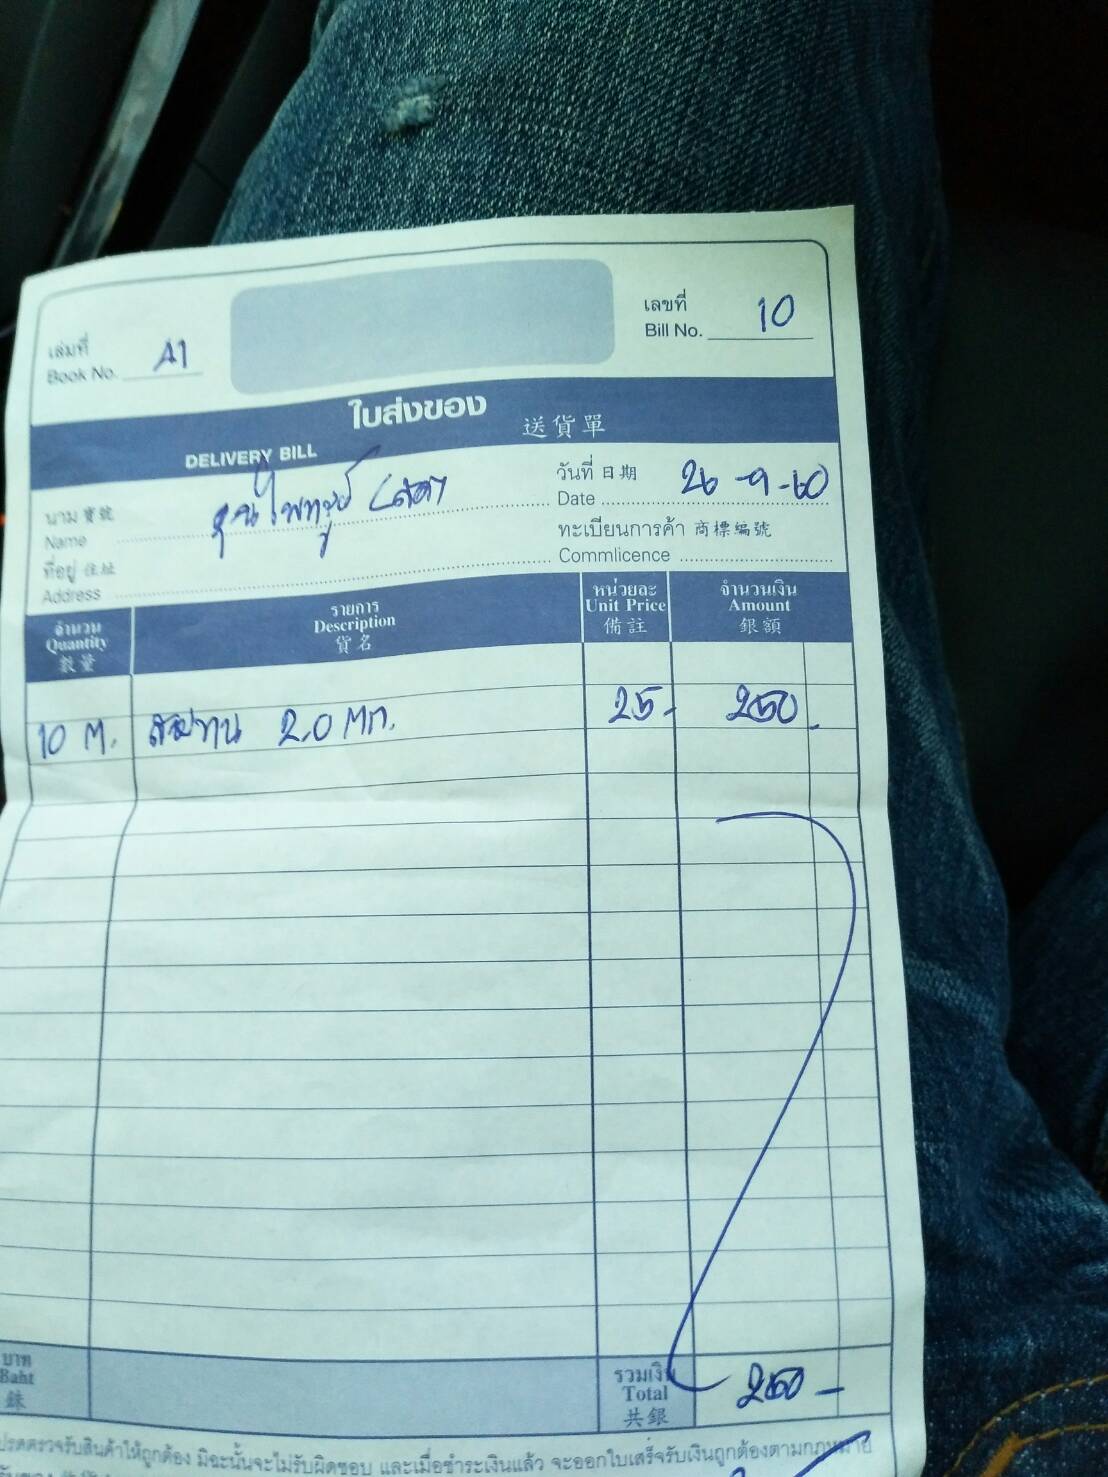 เล่มที่
Book No. A1
เลขที่
Bill No. 10
ใบส่งของ 送貨單
DELIVERY BILL
นาม 寶號
Name
วันที่ 日期
Date 26-9-60
ที่อยู่ 住址
Address
ทะเบียนการค้า 商標編號
Commlicence
จำนวน
Quantity
數量
รายการ
Description
貨名
หน่วยละ
Unit Price
備註
จำนวนเงิน
Amount
銀額
10 M. 2.0 มก. 25.- 250.-
บาท
Baht
銖
รวมเงิน
Total
共銀
250 -
โปรดตรวจรับสินค้าให้ถูกต้อง มิฉะนั้นจะไม่รับผิดชอบ และเมื่อชำระเงินแล้ว จะออกใบเสร็จรับเงินถูกต้องตามกฎหมาย